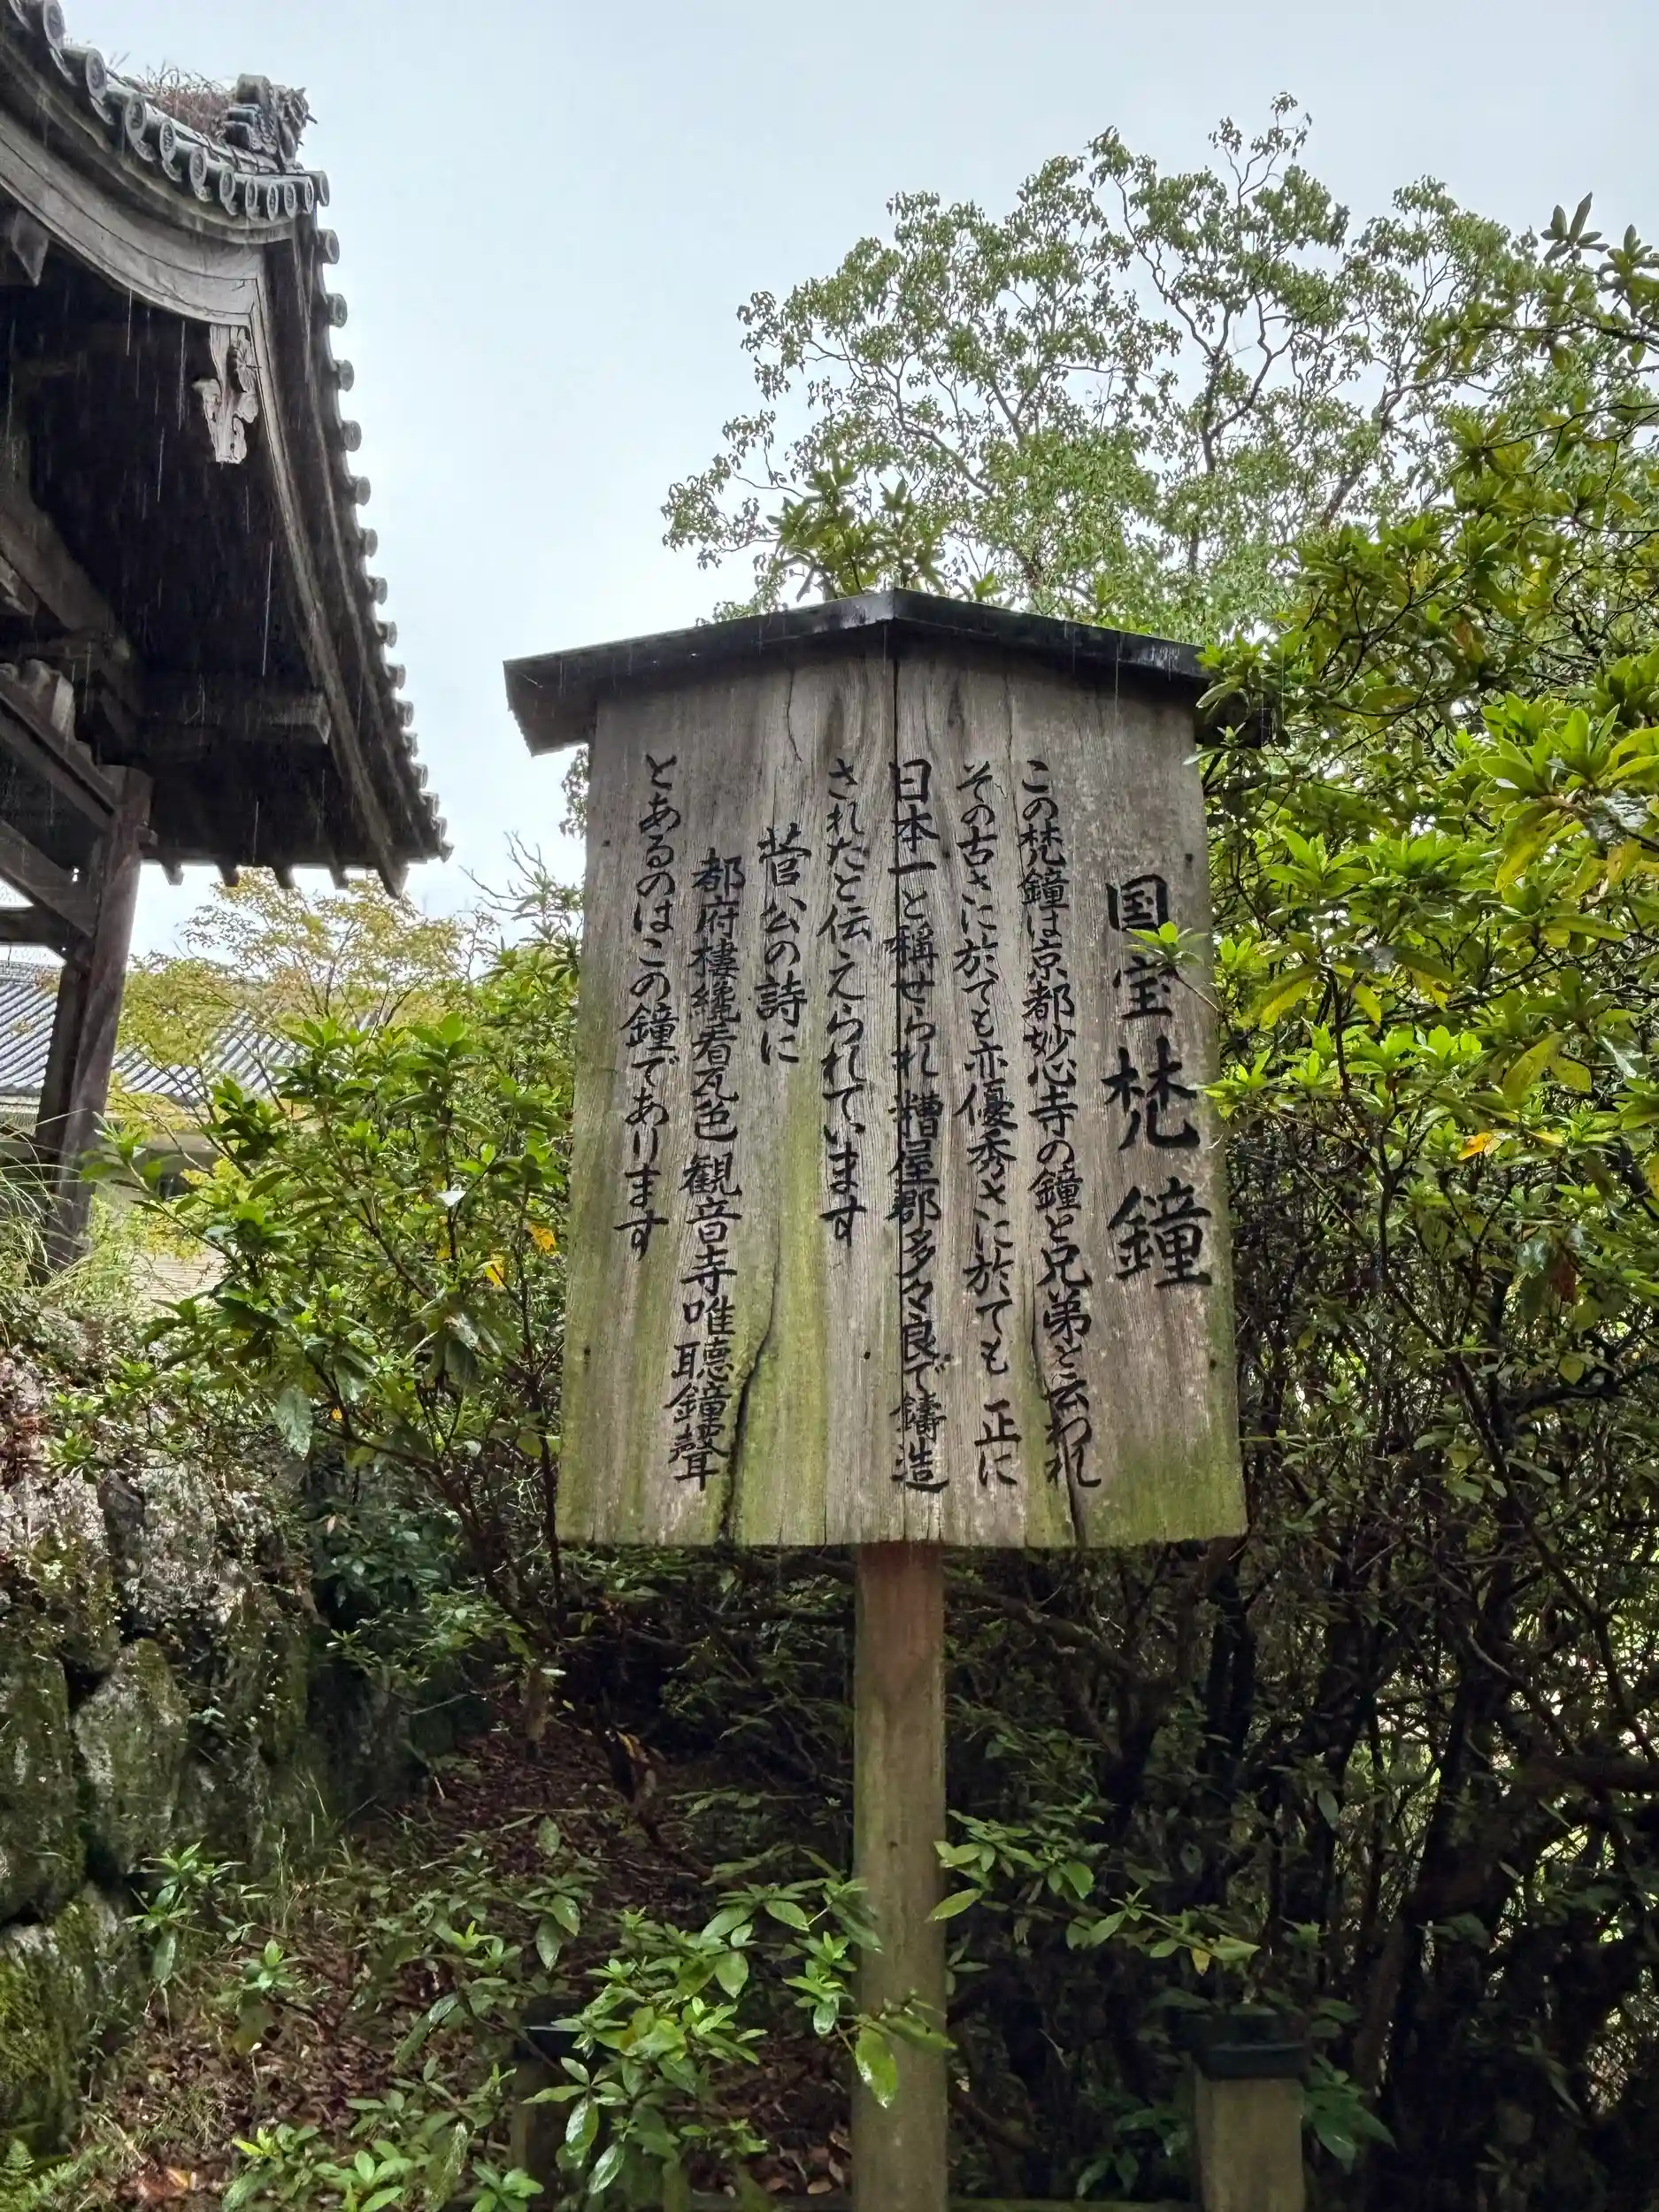 国宝梵鐘
この梵鐘は京都妙心寺の鐘と兄弟と云われ
その古さに於ても亦優秀さに於ても正に
日本一と稱せられ糟屋郡多々良で鑄造
されたと伝えられています
菅公の詩に
都府樓纔看瓦色観音寺唯聴鐘聲
とあるのはこの鐘であります